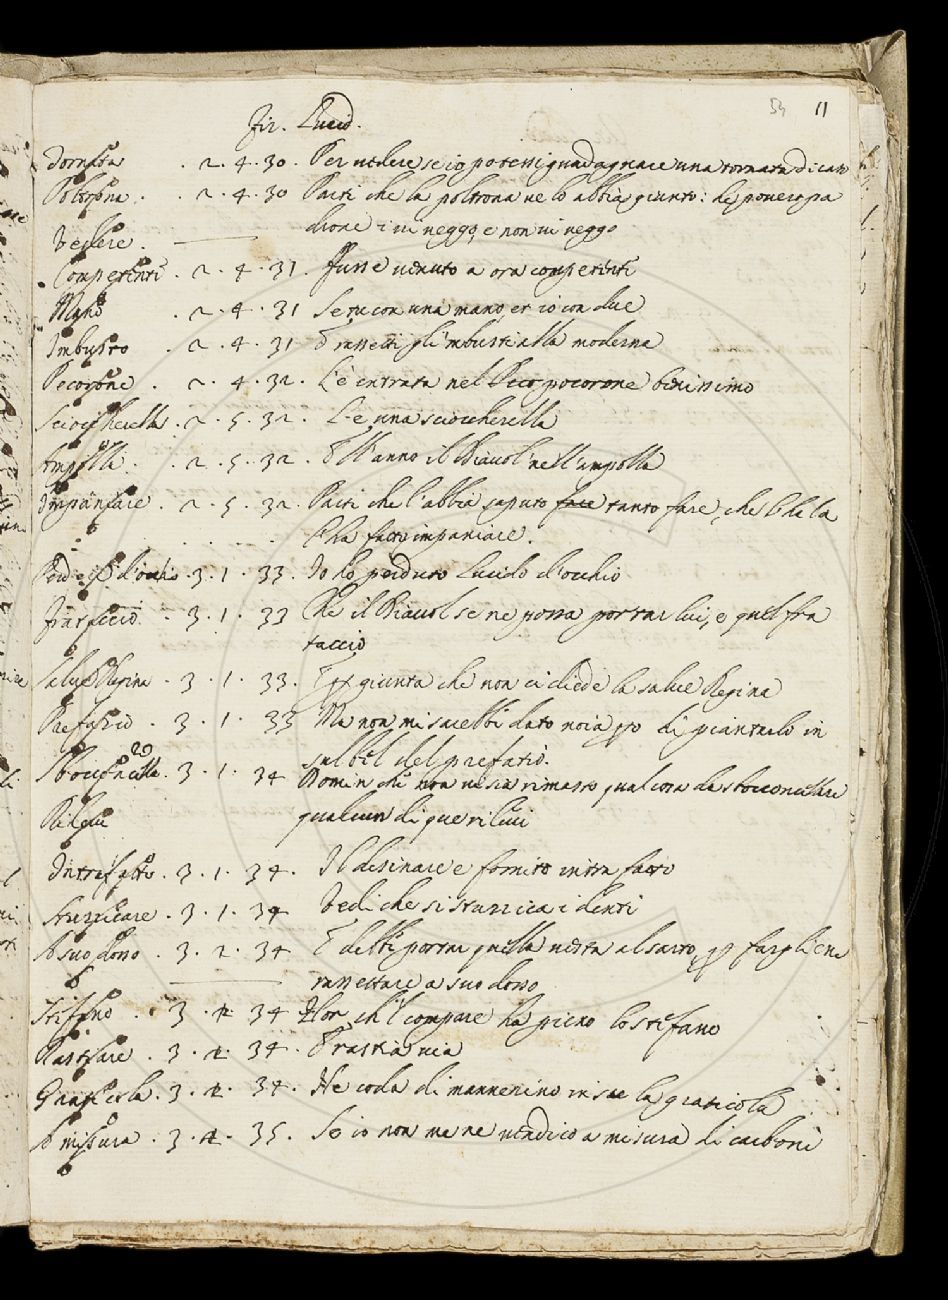 54 11
Fir. Lucid.
Tornata . 2 . 4 . 30 . Per vedere se io potessi guadagnare una tornata di casa
Poltrona . . 2 . 4 . 30 Parti che la poltrona ve lo abbia giunto: il povero pa
drone i vi veggo, e non vi veggo
Vedere .
Competenti . 2 . 4 . 31 . Fusse venuto a ora competenti
Mano . 2 . 4 . 31 Se tu con una mano, et io con due
Imbusto . 2 . 4 . 31 E rassetti gl'imbusti alla moderna
Pecorone . 2 . 4 . 32 . L'è entrata nel Pecoronone benissimo
Scioccherella . 2 . 5 . 32 . L'è una scioccherella
Ampolla . . 2 . 5 . 32 . E ll'anno il Diavol nell'ampolla
Impaniare . 2 . 5 . 32 . Parti che l'abbia saputo tanto fare, che la
l'ha fatto impaniare.
d'occhio . 3 . 1 . 33 . Io ho perduto Lucido d'occhio
Frataccio . 3 . 1 . 33 Che il Diavol se ne possa portar lui, e quel fra
taccio
Salve Regina . 3 . 1 . 33 . E giunta che non ci diede la salve Regina
Prefazio . 3 . 1 . 33 Ma non mi sarebbe dato noia di piantarlo in
sul bel del prefatio.
Sbocconcellare . 3 . 1 . 34 Domin che non vi sia rimasto qualcosa da sbocconcellare
qualcun di quei rilievi
Rilievi
Intrafatto . 3 . 1 . 34 . Il desinare e fornito intra fatto
Stuzzicare . 3 . 1 . 34 Vedi che si stuzzica i denti
A suo dosso . 3 . 2 . 34 E debbi portar quella vesta al sarto, per fargliene
rassettare a suo dosso
Stefano . 3 . 2 34 Hor ch'l compare ha pieno lo stefano
Rastiare . 3 . 2 . 34 . E rastia via
Graticola . 3 . 2 . 34 . He coda di mannerino in su la graticola
A misura . 3 . 2 . 35 . Se io non me ne vendico a misura di carboni